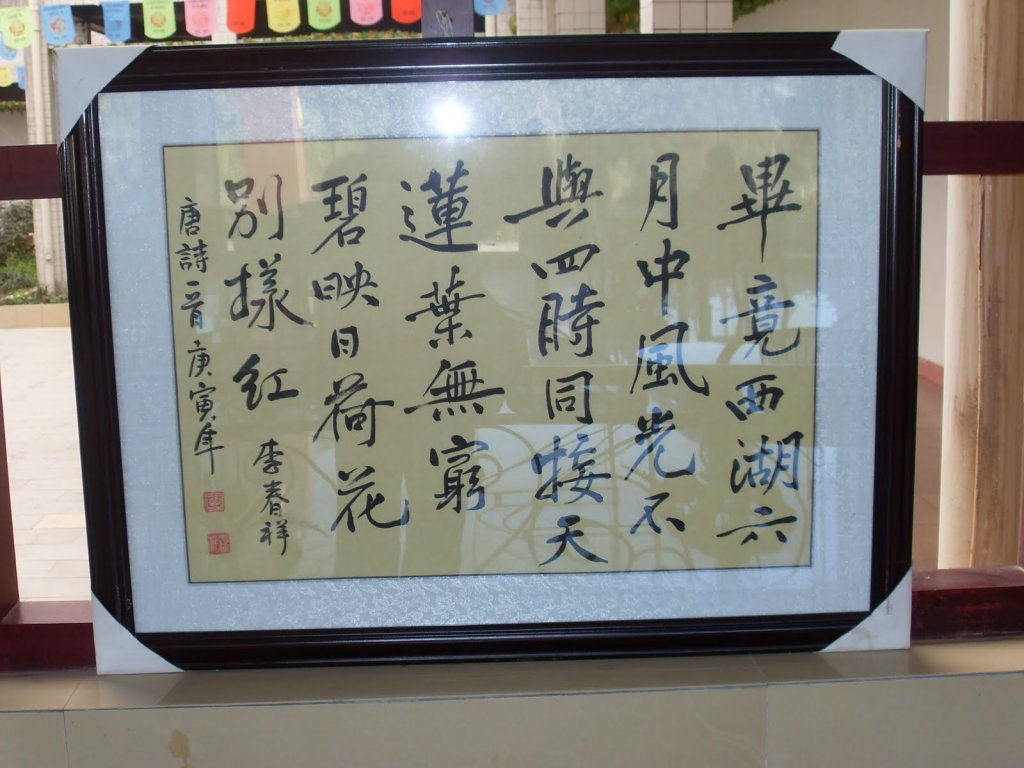 畢竟西湖六
月中風光不
與四時同接天
蓮葉無窮
碧映日荷花
別樣紅
唐詩一首庚寅年
李春祥